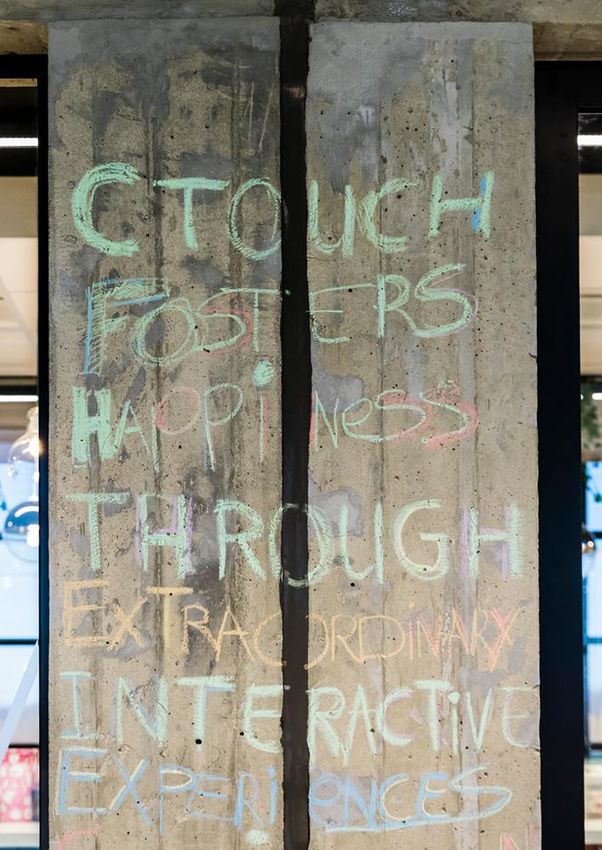 CTOUCH
FOSTERS
HAPPiNeSS
THROUGH
ExTRAORDiNARY
INTERACTiVE
EXPERiENCES